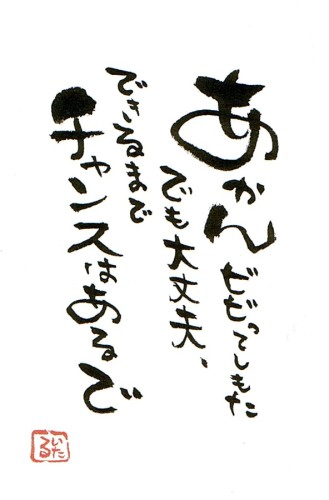 あかん
ビビってしもた
でも大丈夫、
できるまで
チャンスはあるで